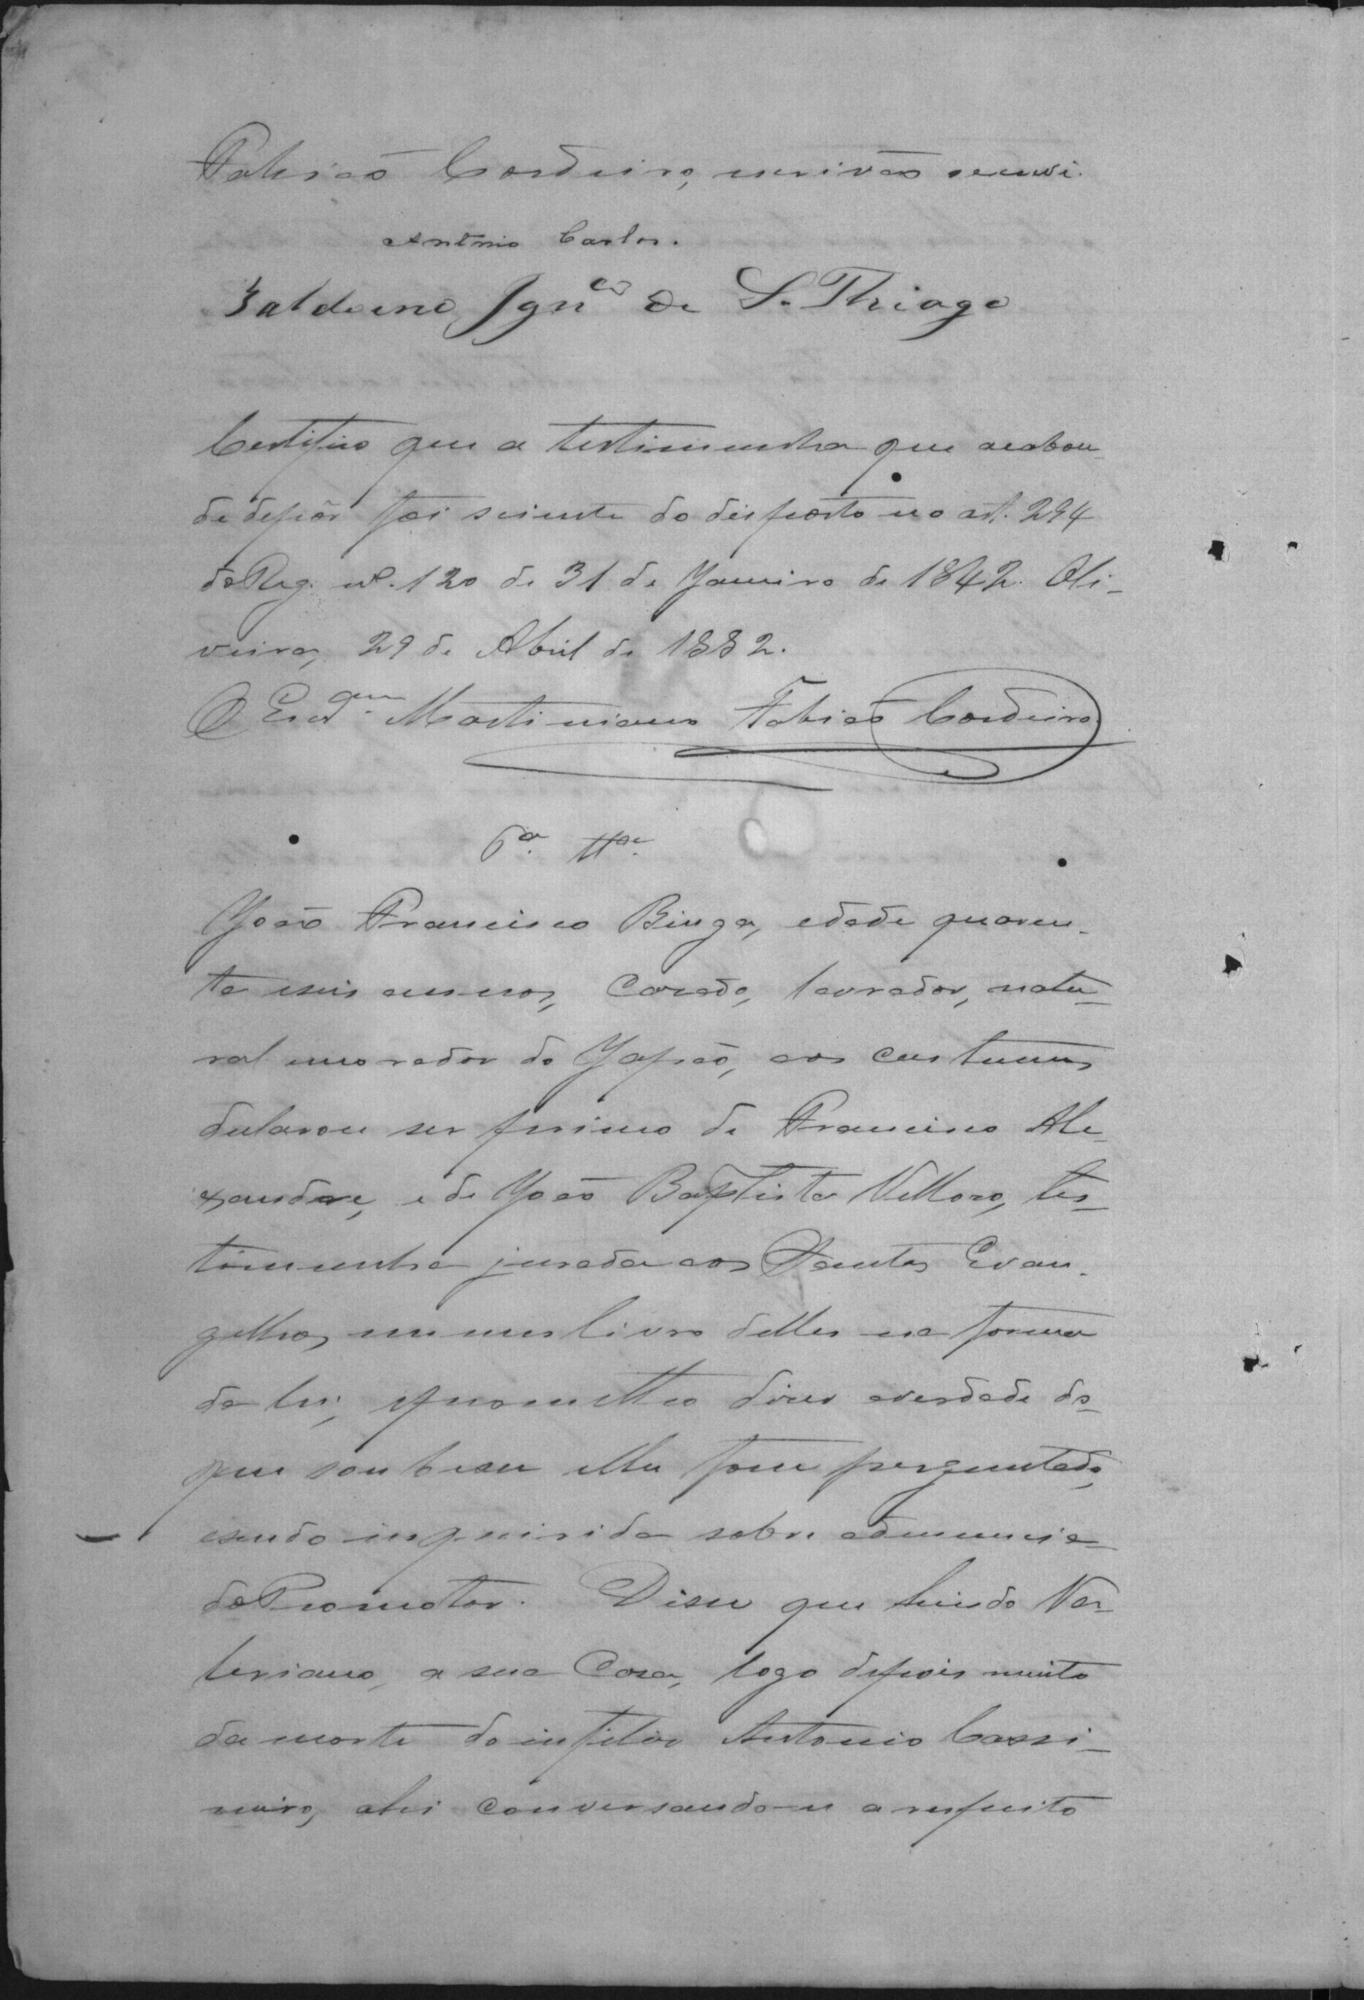 Fabião Cordeiro, escrivão escrevi.
Antonio Carlos.
Galdino Ignco de S. Thiago
Certifico que a testimunha que acabou
de depôr foi sciente do disposto no art. 294
do Reg. nº. 120 de 31 de Janeiro de 1842. Oli-
veira, 29 de Abril de 1882.
O Escram. Martiniano Fabião Cordeiro
6a. tta.
João Francisco Binga, edade quaren-
ta e seis annos, Casado, lavrador, natu-
ral e morador do Japão, aos custumes
declarou ser primo de Francisco Ale-
xandre, e de João Baptista Velloso, tes-
timunha jurada aos Santos Evan-
gelhos, em um livro delles na forma
da lei, e prometteu dizer a verdade do
que soubesse e lhe fosse perguntado,
e sendo inquirida sobre a denuncia
do Promotor. Disse que hindo Va-
leriano, a sua Casa, logo depois muito
da morte do infeliz Antonio Cassi-
miro, ahi conversando-se a respeito